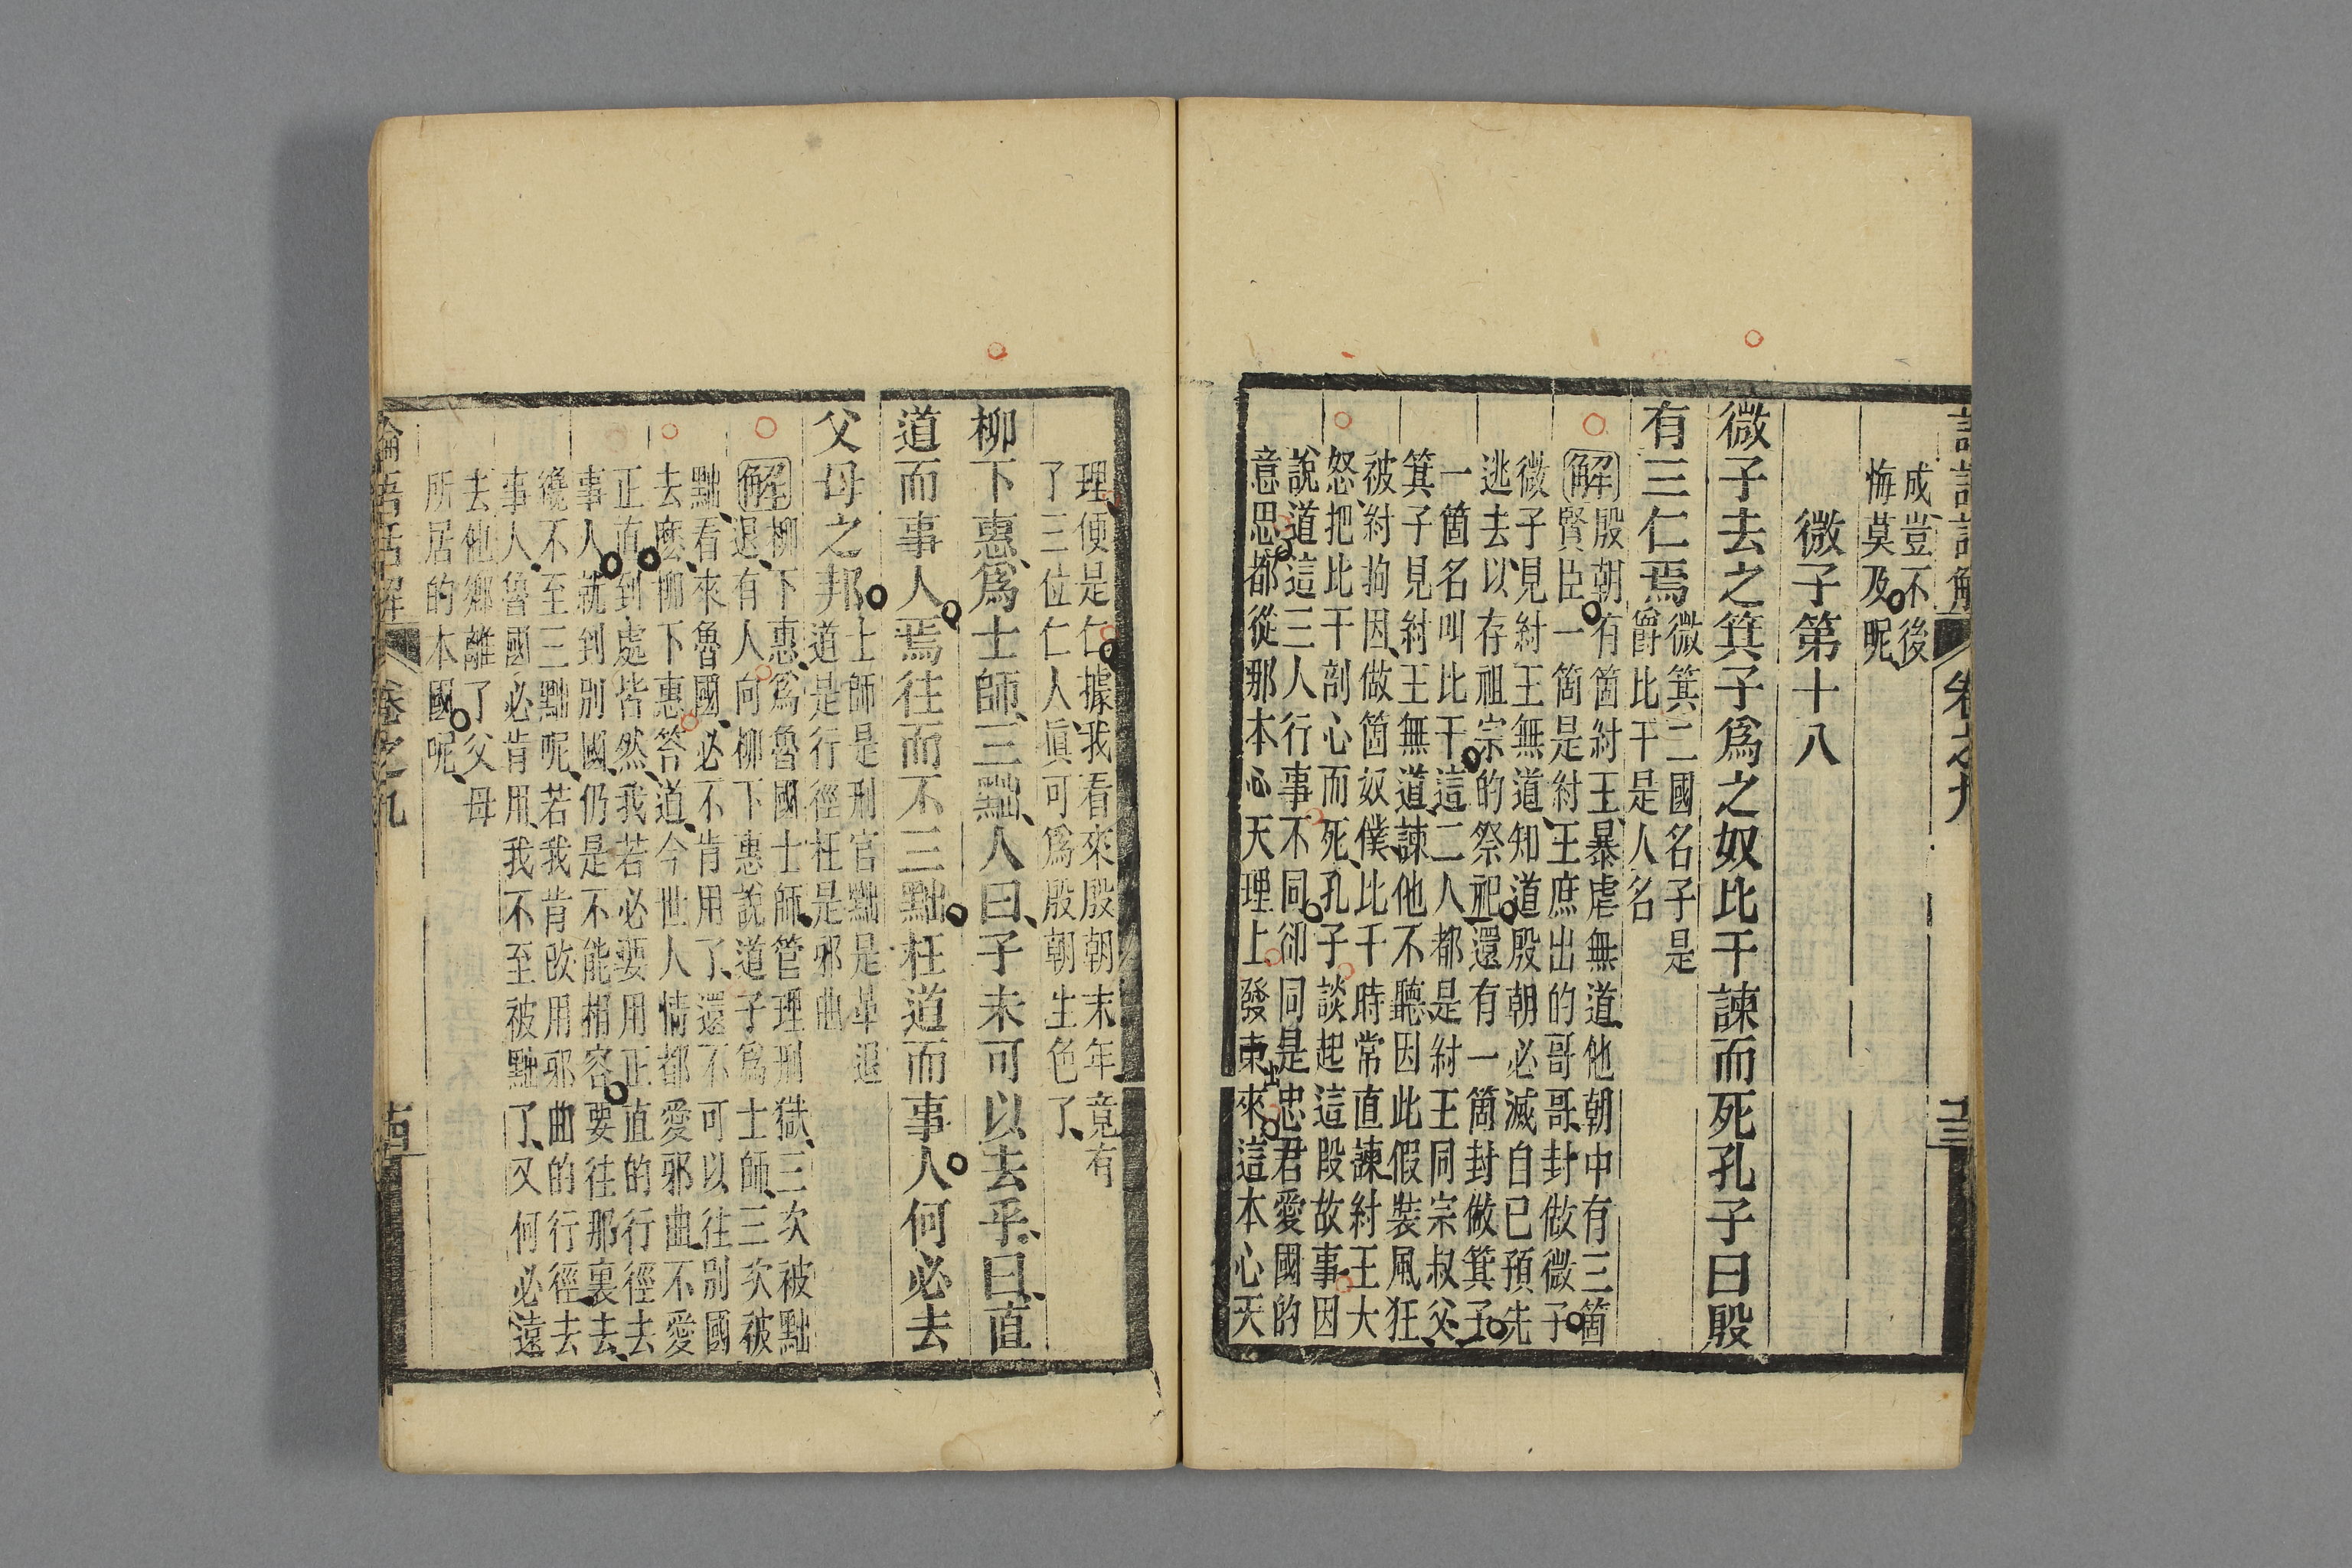 成豈不後
悔莫及呢
微子第十八
微子去之箕子爲之奴比干諫而死孔子曰殷
有三仁焉
微箕二國名子是
爵比干是人名
解
殷朝有箇紂王暴虐無道他朝中有三箇
賢臣一箇是紂王庶出的哥哥封做微子
微子見紂王無道知道殷朝必滅自已預先
逃去以存祖宗的祭祀還有一箇封做箕子
一箇名叫比干這二人都是紂王同宗叔父
箕子見紂王無道諫他不聽因此假裝風狂
被紂拘因做箇奴僕比干時常直諫紂王大
怒把比干剖心而死孔子談起這段故事因
說道這三人行事不同卻同是忠君愛國的
意思都從那本心天理上發柬來這本心天
理便是仁據我看來殷朝末年竟有
了三位仁人眞可爲殷朝生色了
柳下惠爲士師三黜人曰子未可以去乎曰直
道而事人焉往而不三黜枉道而事人何必去
父母之邦
士師是刑官黜是革退
道是行徑枉是邪曲
解
柳下惠爲魯國士師管理刑獄三次被黜
退有人向柳下惠說道子爲士師三次被
黜看來魯國必不肯用了還不可以往別國
去麽柳下惠答道今世人情都愛邪曲不愛
正直到處皆然我若必要用正直的行徑去
事人就到別國仍是不能相容要往那裏去
纔不至三黜呢若我肯改用邪曲的行徑去
事人魯國必肯用我不至被黜了又何必遠
去他鄉離了父母
所居的本國呢
論語話解
卷之九